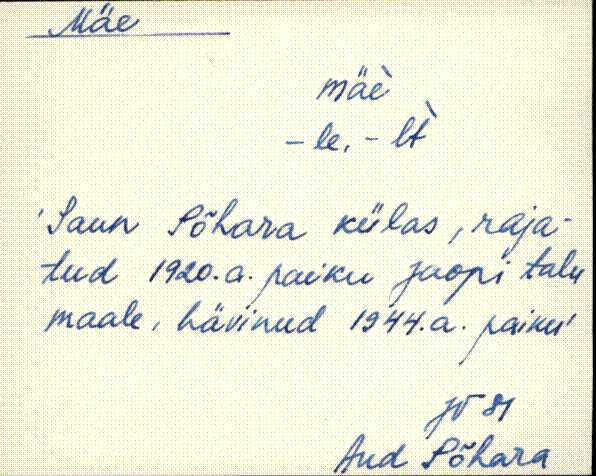 Mäe
mäè
-le, -lt̀
'Saun Sõhara külas, raja-
tud 1920.a. paiku Jaopi talu
maale, hävinud 1944.a. paiku'
JV 81
Aud Sõhara